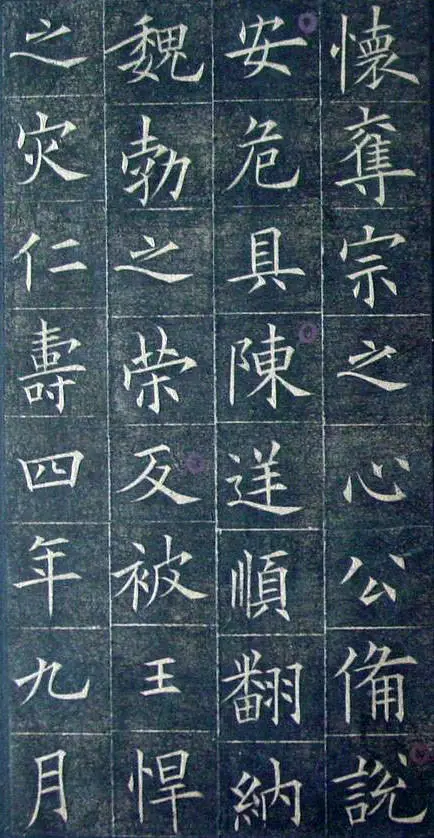 懷奪宗之心公俻説
安危具陳逆順翻納
魏勃之荣反被王悍
之灾仁壽四年九月